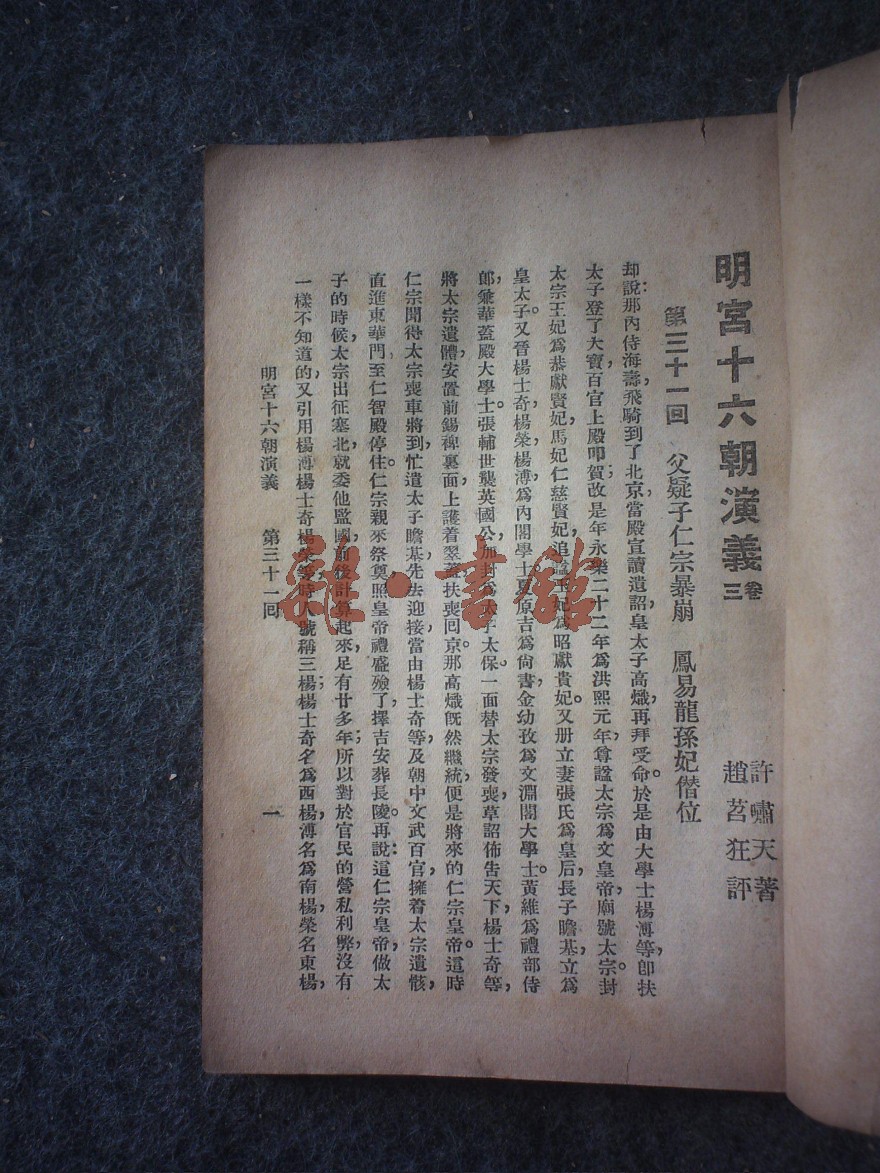 明宮十六朝演義 卷三
許嘯天著
趙苕狂評
第三十一回 父疑子仁宗暴崩 鳳易龍孫妃僭位
却說:那內侍海壽,飛騎到了北京,當殿宣讀遺詔,皇太子高熾,再拜受命。於是由大學士楊溥等,卽扶
太子登了大寶,百官上殿叩賀;改是年永樂二十二年,爲洪熙元年,尊諡太宗爲文皇帝,廟號太宗。封
太宗王妃爲恭獻賢妃,馬妃仁慈賢妃,追諡玉妃爲昭獻貴妃。又册立妻張氏爲皇后,長子瞻基,立爲
皇太子。又晉楊士奇,楊榮,楊溥,爲內閣學士。夏原吉爲尙書,金幼孜爲文淵閣大學士。黃維爲禮部侍
郎,兼華蓋殿大學士。張輔世襲英國公,加封爲太子太保。一面替太宗發喪,草詔佈告天下,楊士奇等,
將太宗遺體,安置前錫椑裏面,上護着翠蓋,扶喪回京。那高熾旣然繼統,便是將來的仁宗皇帝。這時
仁宗聞得太宗喪車將到,忙遣太子瞻基,先去迎接,當由楊士奇等,及朝中文武百官,擁着太宗遺骸,
直進東華門,至仁智殿停住。仁宗親來祭奠,照皇帝禮盛殮了,擇吉安葬長陵。再說:這仁宗皇帝,做太
子的時候,太宗出征塞北,就委他監國,前後計算起來,足有廿多年;所以對於官民的營私利弊,沒有
一樣不知道的,又引用楊溥,楊士奇,楊榮等,時人號稱三楊;楊士奇名爲西楊,溥名爲南楊,榮名東楊,
明宮十六朝演義 第三十一回 一
雜·書館